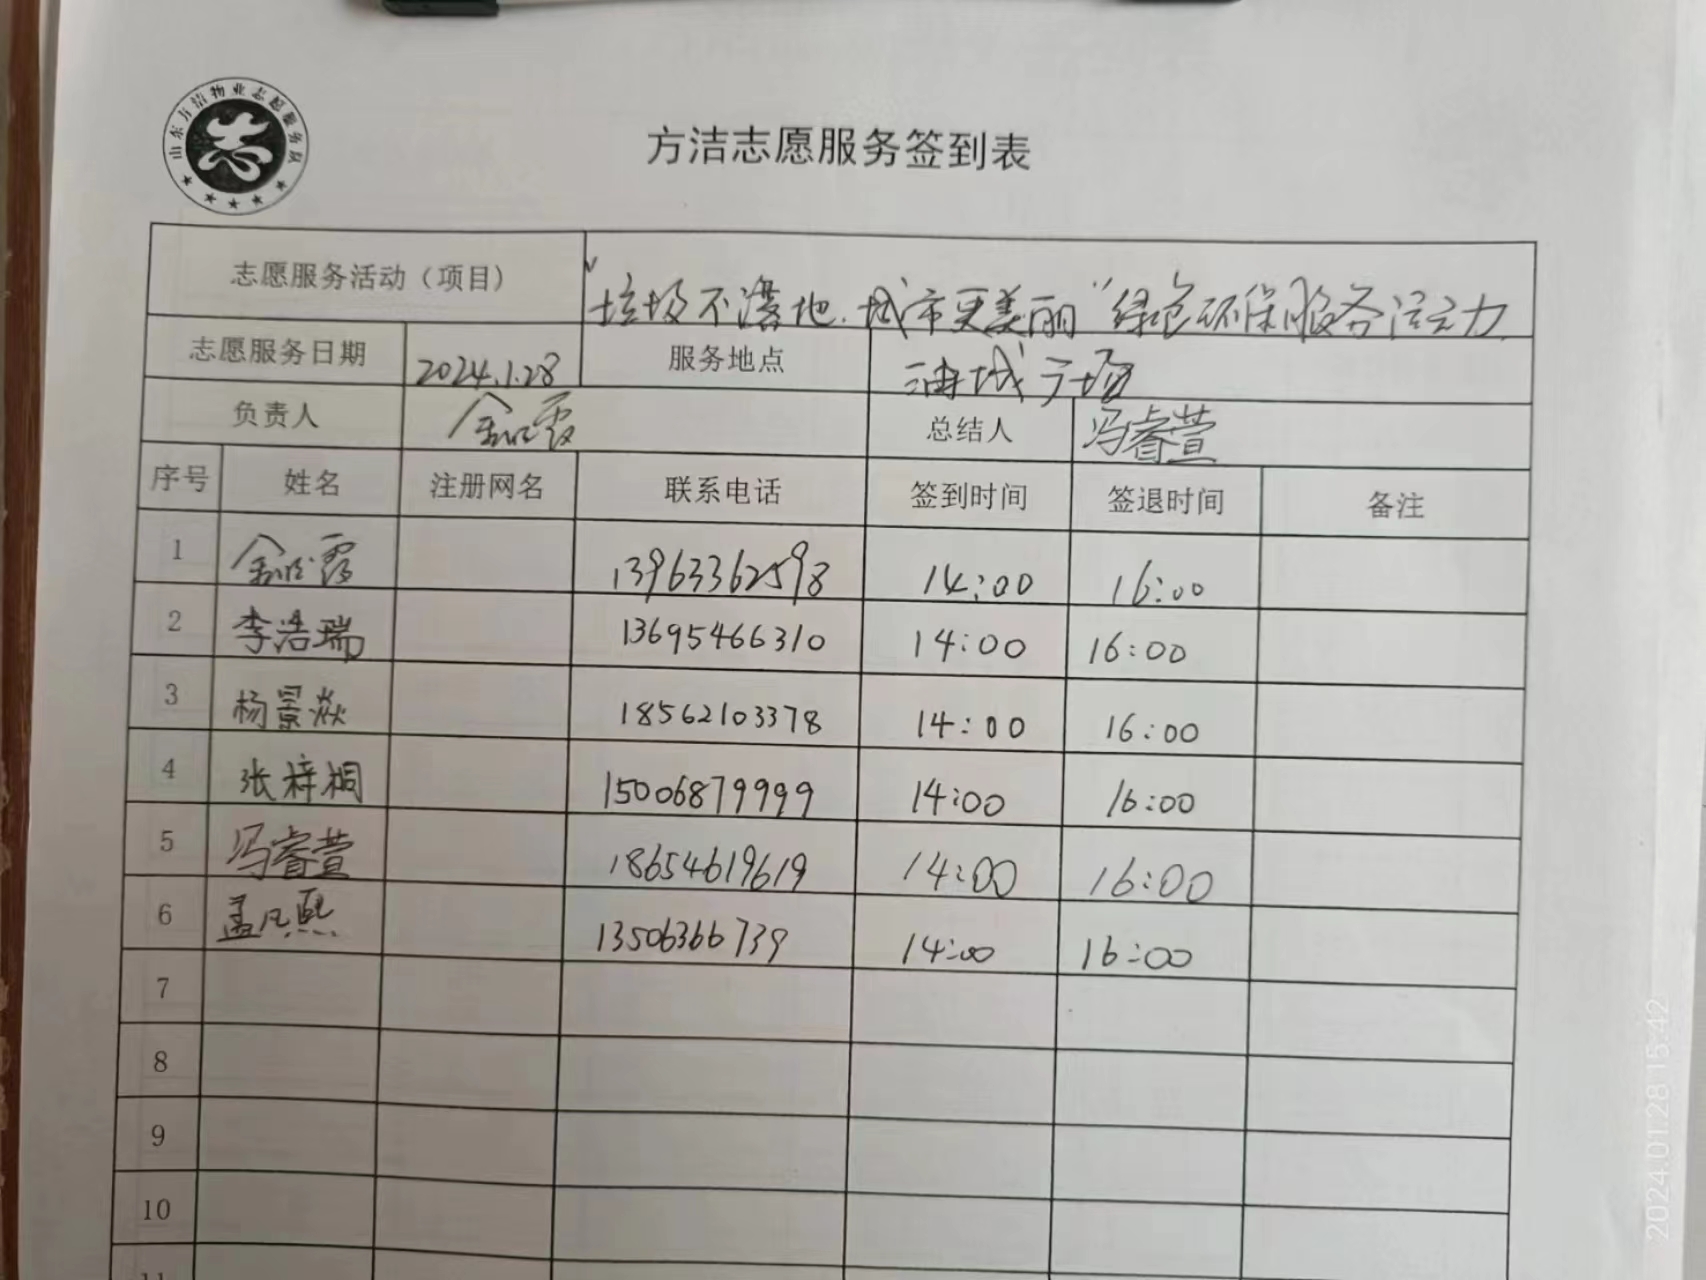 山东方洁物业志愿服务队
志
方洁志愿服务签到表
志愿服务活动（项目） "垃圾不落地.城市更美丽"绿色环保服务活动
志愿服务日期 2024.1.28 服务地点 油城广场
负责人 总结人 冯睿萱
序号 姓名 注册网名 联系电话 签到时间 签退时间 备注
1 13963362598 14:00 16:00
2 李浩瑞 13695466310 14:00 16:00
3 杨景焱 18562103378 14:00 16:00
4 张梓桐 15006879999 14:00 16:00
5 冯睿萱 18654619619 14:00 16:00
6 孟凡熙 13506366739 14:00 16:00
7
8
9
10
11
2024.01.28 15:42